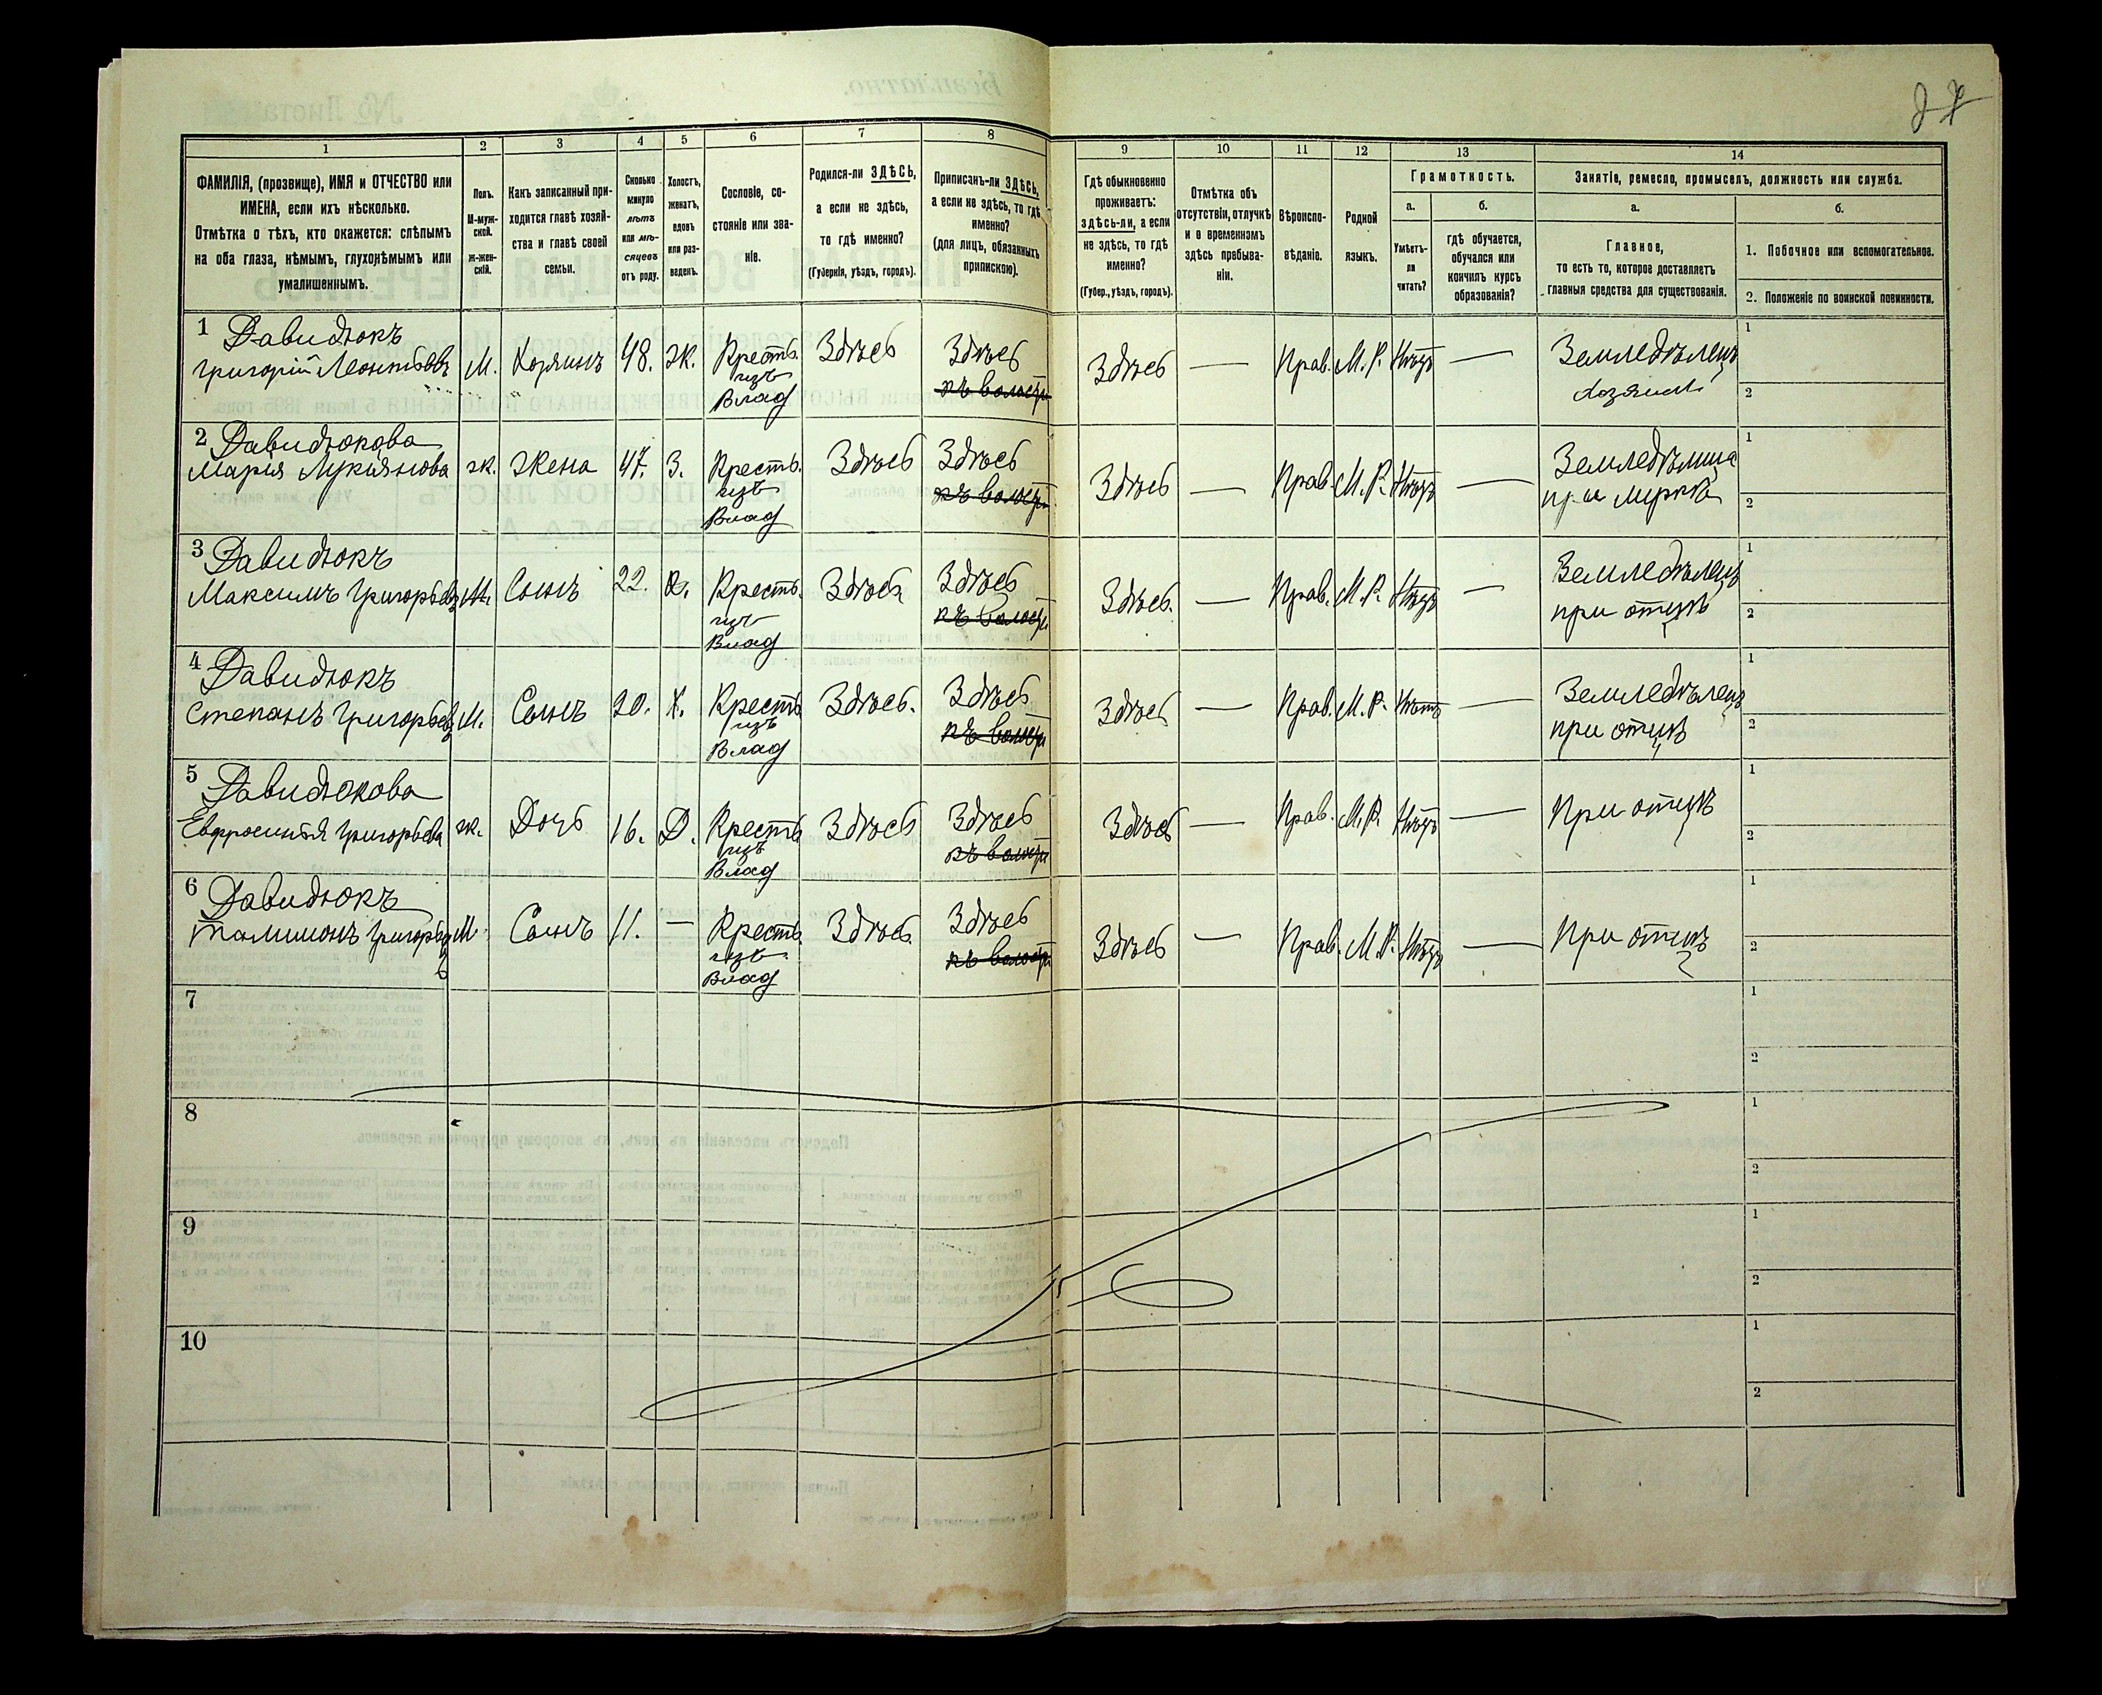 27
1
2
3
4
5
6
7
8
9
10
11
12
13
14
ФАМИЛІЯ, (прозвище), ИМЯ и ОТЧЕСТВО или
ИМЕНА, если ихъ нѣсколько.
Отмѣтка о тѣхъ, кто окажется: слѣпымъ
на оба глаза, нѣмымъ, глухонѣмымъ или
умалишеннымъ.
Полъ.
М-муж-
ской.
ж-жен-
скій.
Какъ записанный при-
ходится главѣ хозяй-
ства и главѣ своей
семьи.
Сколько
минуло
лѣтъ
или мѣ-
сяцевъ
отъ роду.
Холостъ,
женатъ,
вдовъ
или раз-
веденъ.
Сословіе, со-
стояніе или зва-
ніе.
Родился-ли ЗДѢСЬ,
а если не здѣсь,
то гдѣ именно?
(Губернія, уѣздъ, городъ).
Приписанъ-ли ЗДѢСЬ,
а если не здѣсь, то гдѣ
именно?
(для лицъ, обязанныхъ
припискою).
Гдѣ обыкновенно
проживаетъ:
здѣсь-ли, а если
не здѣсь, то гдѣ
именно?
(Губер., уѣздъ, городъ).
Отмѣтка объ
отсутствіи, отлучкѣ
и о временномъ
здѣсь пребыва-
ніи.
Вѣроиспо-
вѣданіе.
Родной
языкъ.
Грамотность.
а.
б.
Умѣетъ-
ли
читать?
гдѣ обучается,
обучался или
кончилъ курсъ
образованія?
Занятіе, ремесло, промыселъ, должность или служба.
а.
б.
Главное,
то есть то, которое доставляетъ
главныя средства для существованія.
1. Побочное или вспомогательное.
2. Положеніе по воинской повинности.
1 Давидюкъ
Григорій Леонтьевъ
М.
Хозяинъ
48.
Ж.
Крестъ.
изъ
Влад
Здѣсь
Здѣсь
къ волости
Здѣсь
—
Прав.
М. Р.
Нѣтъ
—
Земледѣлецъ
Хозяинъ
1
2
2 Давидюкова
Марія Лукіянова
ж.
Жена
47.
З.
Крестъ.
изъ
Влад
Здѣсь
Здѣсь
къ волости
Здѣсь
—
Прав.
М. Р.
Нѣтъ
—
при мужѣ
1
2
3 Давидюкъ
Максимъ Григорьевъ
М.
Сынъ
22.
Х.
Крестъ.
изъ
Влад
Здѣсь
Здѣсь
къ волости
Здѣсь.
—
Прав.
М. Р.
Нѣтъ
—
Земледѣлецъ
при отцѣ
1
2
4 Давидюкъ
Степанъ Григорьевъ
М.
Сынъ
20.
Х.
Крестъ
изъ
Влад
Здѣсь.
Здѣсь
къ волости
Здѣсь
—
Прав.
М. Р.
Нѣтъ
—
Земледѣлецъ
при отцѣ
1
2
5 Давидюкова
Евфросинія Григорьева
ж.
Дочь
16.
Д.
Крестъ
изъ
Влад
Здѣсь
Здѣсь
къ волости
Здѣсь
—
Прав.
М. Р.
Нѣтъ
—
При отцѣ
1
2
6 Давидюкъ
Григорьевъ
М.
Сынъ
11.
—
Крестъ.
изъ
Влад
Здѣсь
Здѣсь
къ волости
Здѣсь
—
Прав.
М. Р.
Нѣтъ
—
При отцѣ
1
2
7
1
2
8
1
2
9
1
2
10
1
2